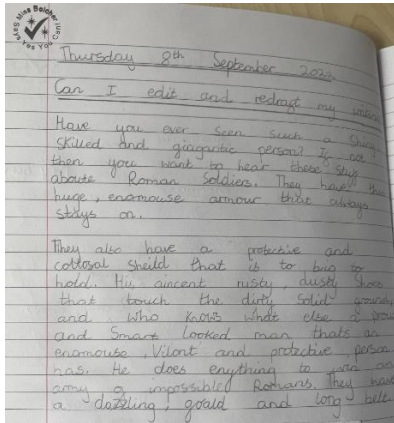 Miss Belcher says Yes You Can!
Thursday 8th September 2022
Can I edit and redraft my writing
Have you ever seen such a strong
skilled and giagantic person? If not
then you want to hear these
aboute Roman Soldiers. They have this
huge, enomouse armour that always
stays on.
They also have a protective and
collosal sheild that is to bug to
hold. His ancent rusty, dusty shoes
that touch the dirty solid ground,
and who knows what else a prou
and Smart looked man thats an
enomouse, Vilont and protective person
has. He does enything to win an
army of impossible Romans. They have
a dazzling, goald and long belt